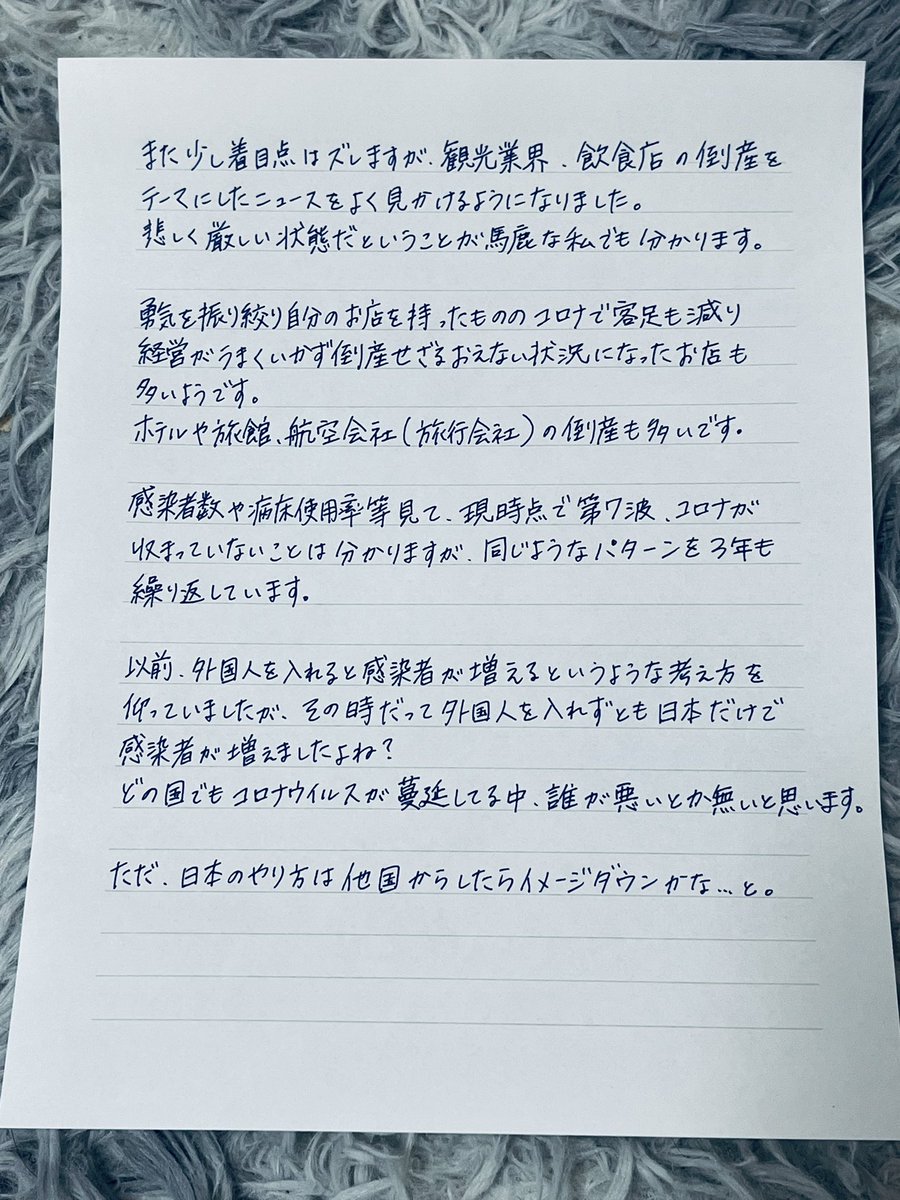 また少し着目点はズレますが、観光業界、飲食店の倒産を
テーマにしたニュースをよく見かけるようになりました。
悲しく厳しい状態だということが馬鹿な私でも分かります。
勇気を振り絞り自分のお店を持ったもののコロナで客足も減り
経営がうまくいかず倒産せざるおえない状況になったお店も
多いようです。
ホテルや旅館、航空会社(旅行会社)の倒産も多いです。
感染者数や病床使用率等見て、現時点で第7波、コロナが
収まっていないことは分かりますが、同じようなパターンを3年も
繰り返しています。
以前、外国人を入れると感染者が増えるというような考え方を
仰っていましたが、その時だって外国人を入れずとも日本だけで
感染者が増えましたよね?
どの国でもコロナウイルスが蔓延してる中、誰が悪いとか無いと思います。
ただ、日本のやり方は他国からしたらイメージダウンかな…と。